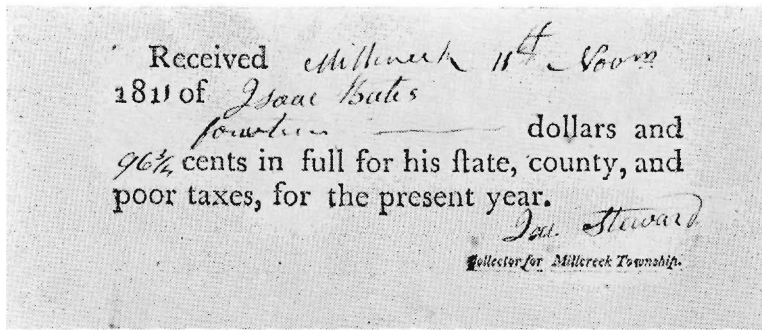 Received Millcreek 11th Novm
1811 of Isaac Bates
fourteen dollars and
96¾ cents in full for his ſtate, county, and
poor taxes, for the present year.
Steward
Collector for Millcreek Township.